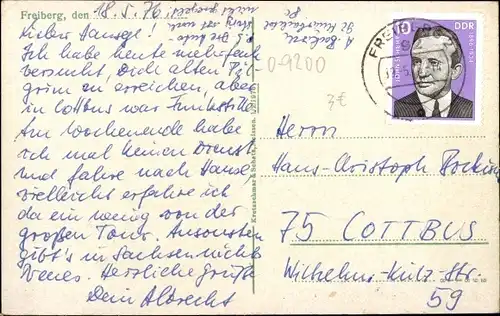 Freiberg, den 18.5.76
Lieber Hansgel!
Ich habe heute mehrfach
versucht, Dich alten Pil-
grim zu erreichen, aber
in Cottbus war Funkstille.
Am Wochenende habe
ich mal keinen Dienst
und fahre nach Hause,
vielleicht erfahre ich
da ein wenig von der
großen Tour. Ansonsten
gibt's in Sachsen nichts
Neues. Herzliche Grüße
Dein Albrecht
0-9200
3€
10
DDR
Herrn
Hans-Christoph
75 COTTBUS
Wilhelm-Külz-Str.
59